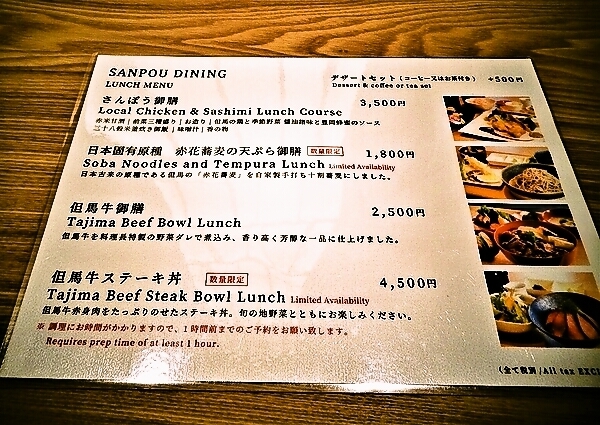 SANPOU DINING
LUNCH MENU
デザートセット(コーヒー又はお茶付き) +500円
Dessert & coffee or tea set
さんぽう御膳 3,500円
Local Chicken & Sushimi Lunch Course
赤米甘酒 | 前菜三種盛り | お造り | 但馬の鶏と季節野菜 醤油糀味と豊岡蜂蜜のソース
二十八穀米釜炊き御飯 | 味噌汁 | 香の物
日本固有原種 赤花蕎麦の天ぷら御膳 数量限定 1,800円
Soba Noodles and Tempura Lunch Limited Availability
日本古来の原種である但馬の「赤花蕎麦」を自家製手打ち十割蕎麦にしました。
但馬牛御膳 2,500円
Tajima Beef Bowl Lunch
但馬牛を料理長特製の野菜ダレで煮込み、香り高く芳醇な一品に仕上げました。
但馬牛ステーキ丼 数量限定 4,500円
Tajima Beef Steak Bowl Lunch Limited Availability
但馬牛赤身肉をたっぷりのせたステーキ丼。旬の地野菜とともにお楽しみください。
※ 調理にお時間がかかりますので、1時間前までのご予約をお願い致します。
Requires prep time of at least 1 hour.
(全て税別/All tax EXCL